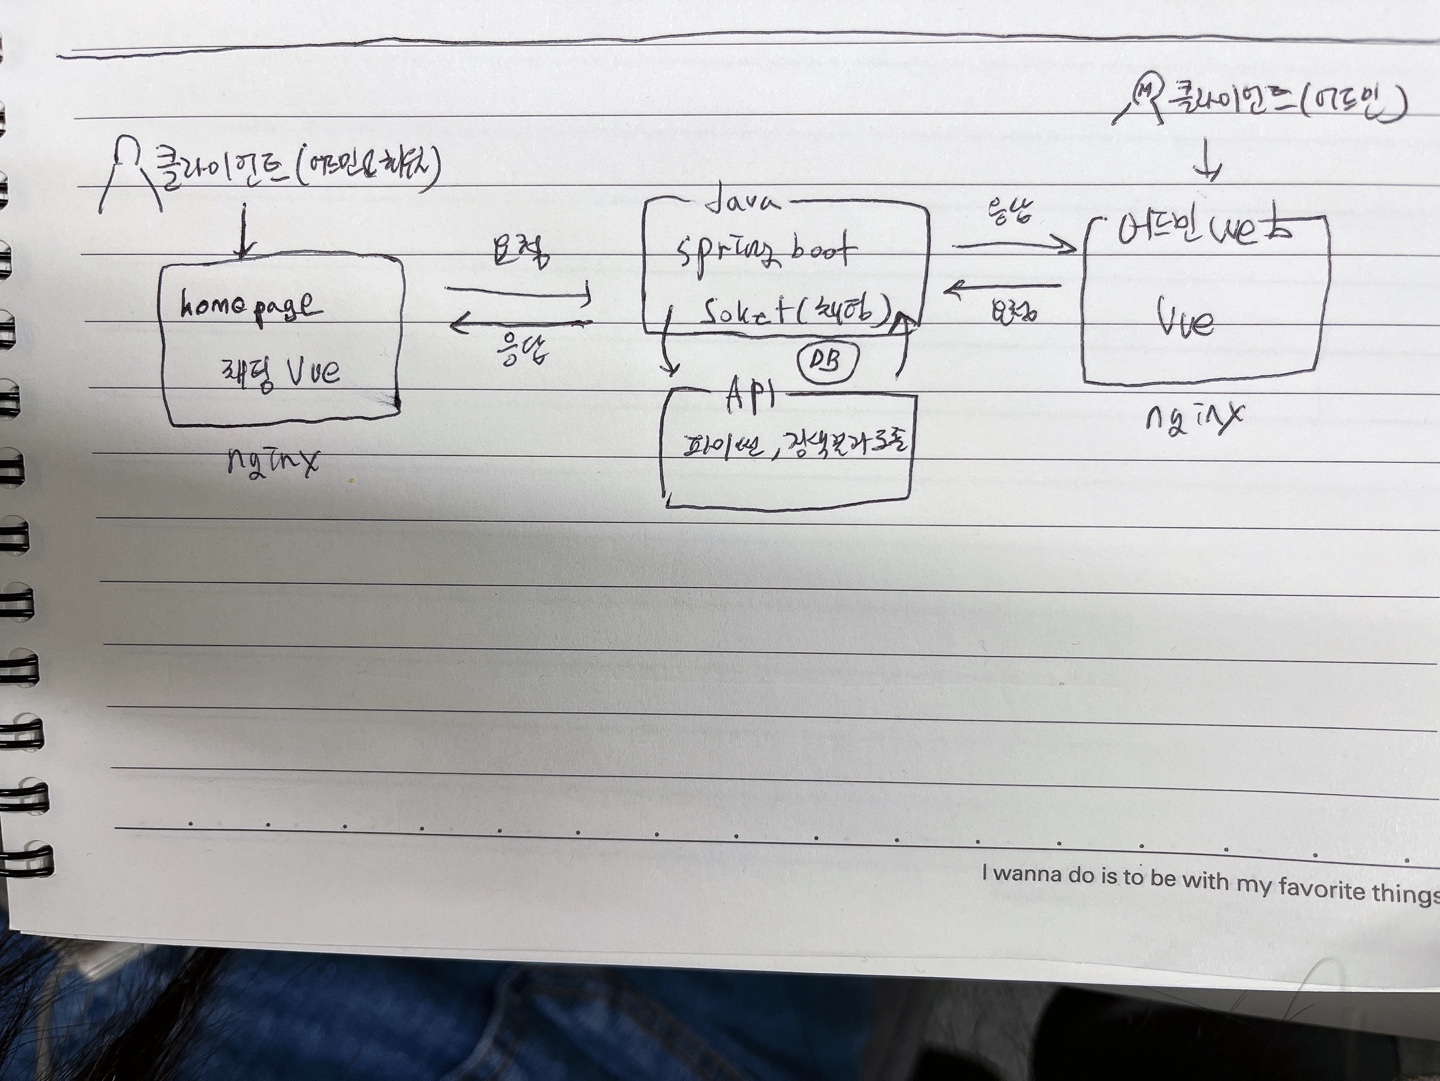 클라이언트(어드민)
클라이언트(어드민
homepage
채팅 Vue
nginx
요청
응답
Java
spring boot
Soket(채팅)
DB
API
파이썬,검색
응답
요청
어드민 We b
Vue
nginx
I wanna do is to be with my favorite things